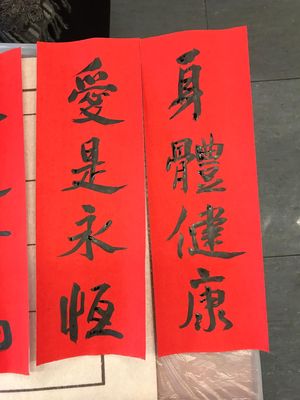 身體健康
愛是永恆